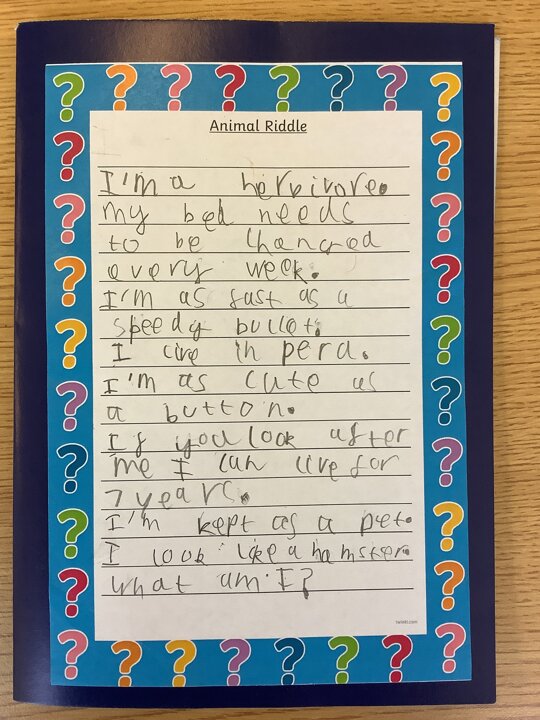 Animal Riddle
I'm a hervivore.
my bed needs
to be Changed
every week.
I'm as fast as a
speedy bullet.
I live in peru.
I'm as cute as
a button.
If you look after
me I can live for
7 years.
I'm kept as a pet.
I look like a hamster.
what am I?
twinkl.com